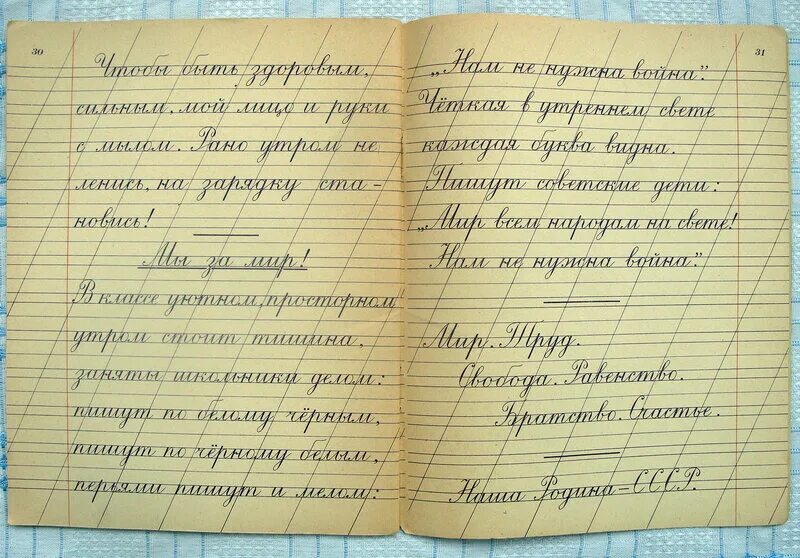 30
Чтобы быть здоровым,
сильным, мой лицо и руки
с мылом. Рано утром не
ленись, на зарядку ста-
новись!
Мы за мир!
В классе уютном, просторном
утром стоит тишина,
заняты школьники делом:
пишут по белому чёрным,
пишут по чёрному белым,
перьями пишут и мелом:
31
„Нам не нужна война".
Чёткая в утреннем свете
каждая буква видна.
Пишут советские дети:
„Мир всем народам на свете!
Нам не нужна война".
Мир. Труд.
Свобода. Равенство.
Братство. Счастье.
Наша Родина – СССР.